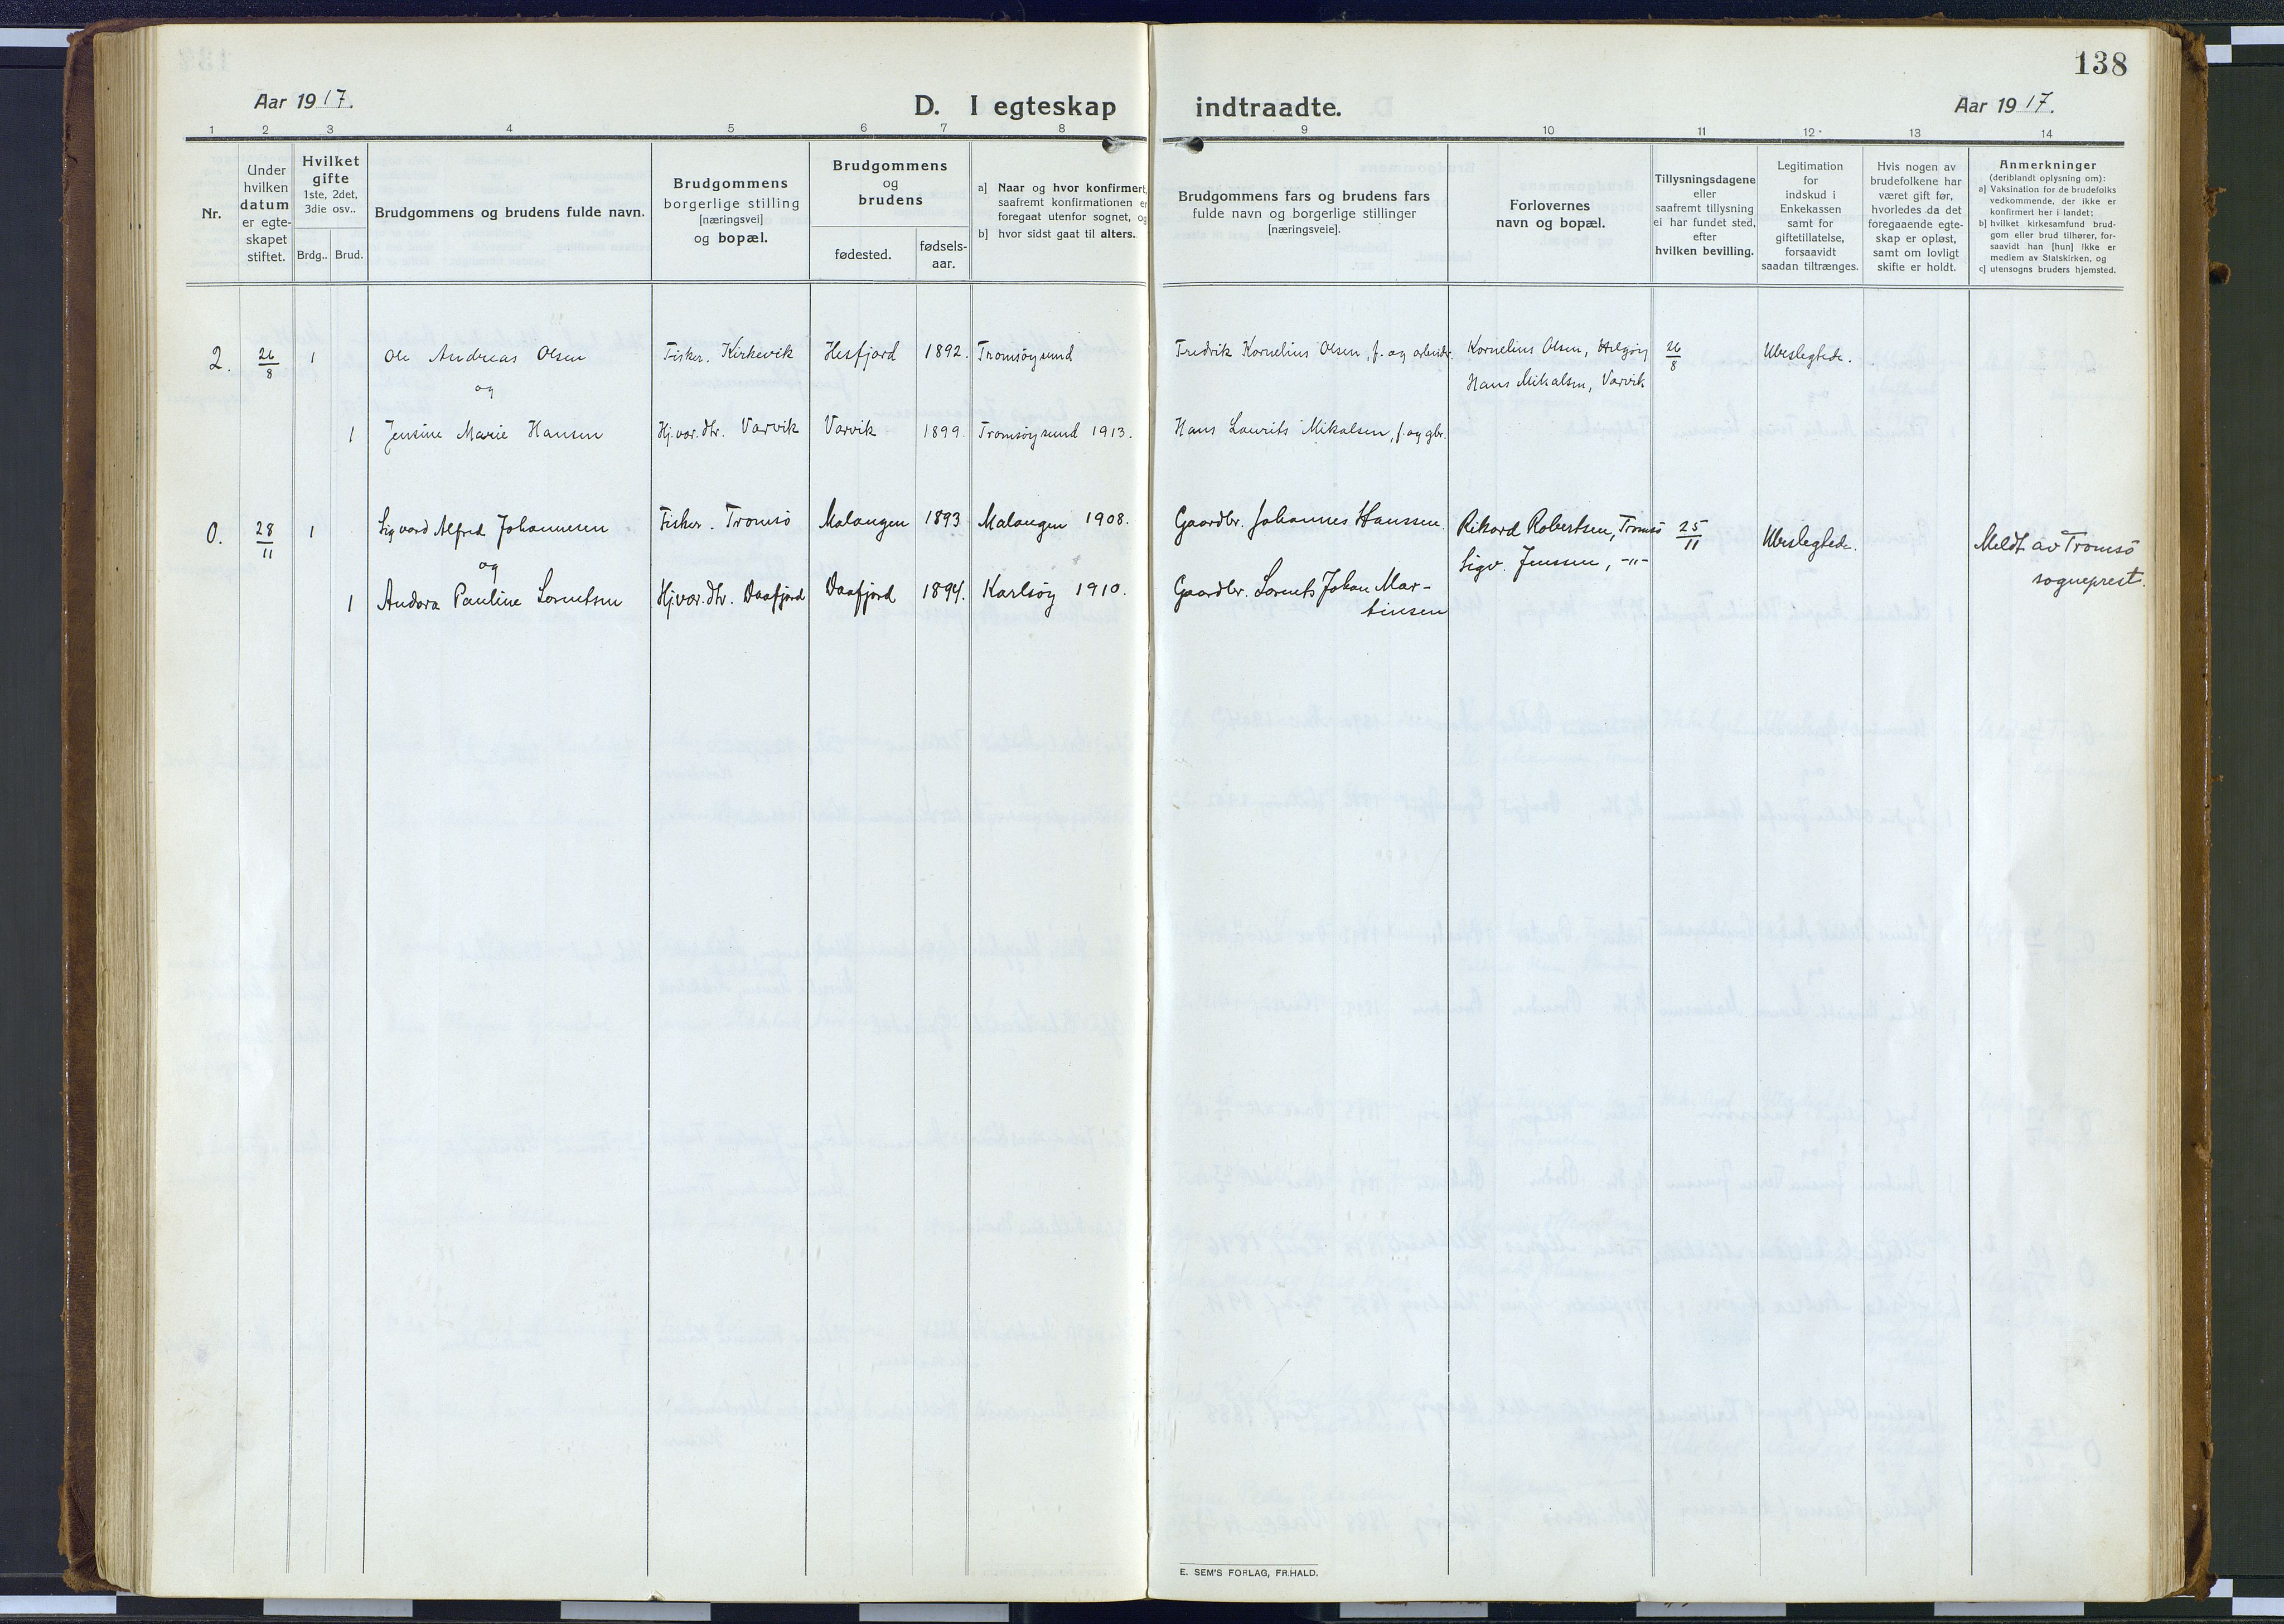 138
Aar 1917.
D. I egteskap indtraadte.
Aar 1917.
1 2 3 4 5 6 7 8 9 10 11 12 13 14
Nr.
Under
hvilken
datum
er egte-
skapet
stiftet.
Hvilket
gifte
1ste, 2det,
3die osv..
Brdg.. Brud.
Brudgommens og brudens fulde navn.
Brudgommens
borgerlige stilling
[næringsvei]
og bopæl.
Brudgommens
og
brudens
fødested.
fødsels-
aar.
a] Naar og hvor konfirmert,
saafremt konfirmationen er
foregaat utenfor sognet, og
b] hvor sidst gaat til alters.
Brudgommens fars og brudens fars
fulde navn og borgerlige stillinger
[næringsveie].
Forlovernes
navn og bopæl.
Tillysningsdagene
eller
saafremt tillysning
ei har fundet sted,
efter
hvilken bevilling.
Legitimation
for
indskud i
Enkekassen
samt for
giftetillatelse,
forsaavidt
saadan tiltrænges.
Hvis nogen av
brudefolkene har
været gift før,
hvorledes da det
foregaaende egte-
skap er opløst,
samt om lovligt
skifte er holdt.
Anmerkninger
(deriblandt oplysning om):
a] Vaksination for de brudefolks
vedkommende, der ikke er
konfirmert her i landet;
b] hvilket kirkesamfund brud-
gom eller brud tilhører, for-
saavidt han [hun] ikke er
medlem av Statskirken, og
c] utensogns bruders hjemsted.
2. 26/8 1 Ole Andreas Olsen Fisker. Kirkevik Hesfjord 1892. Tromsøysund Fredrik Kornelius Olsen, f. og arbeidr. Kornelius Olsen, Helgøy 26/8 Ubeslegtede.
og Hans Mikalsen, Varvik
1 Jensine Marie Hansen Hj.vær.dtr. Varvik Varvik 1899. Tromsøysund 1913. Hans Laurits Mikalsen, f. og gbr.
0. 28/11 1 Sigvard Alfred Johannesen Fisker. Tromsø Malangen 1893 Malangen 1908. Gaardbr. Johannes Hanssen. Rikard Robertsen, Tromsø 25/11 Ubeslegtede. Meldt av Tromsø
og Sigv. Jenssen, -"- sogneprest.
1 Andora Pauline Lorentsen Hj.vær.dtr. Daafjord Daafjord 1894. Karlsøy 1910. Gaardbr. Lorents Johan Mar-
tinsen
E. SEM'S FORLAG, FR.HALD.